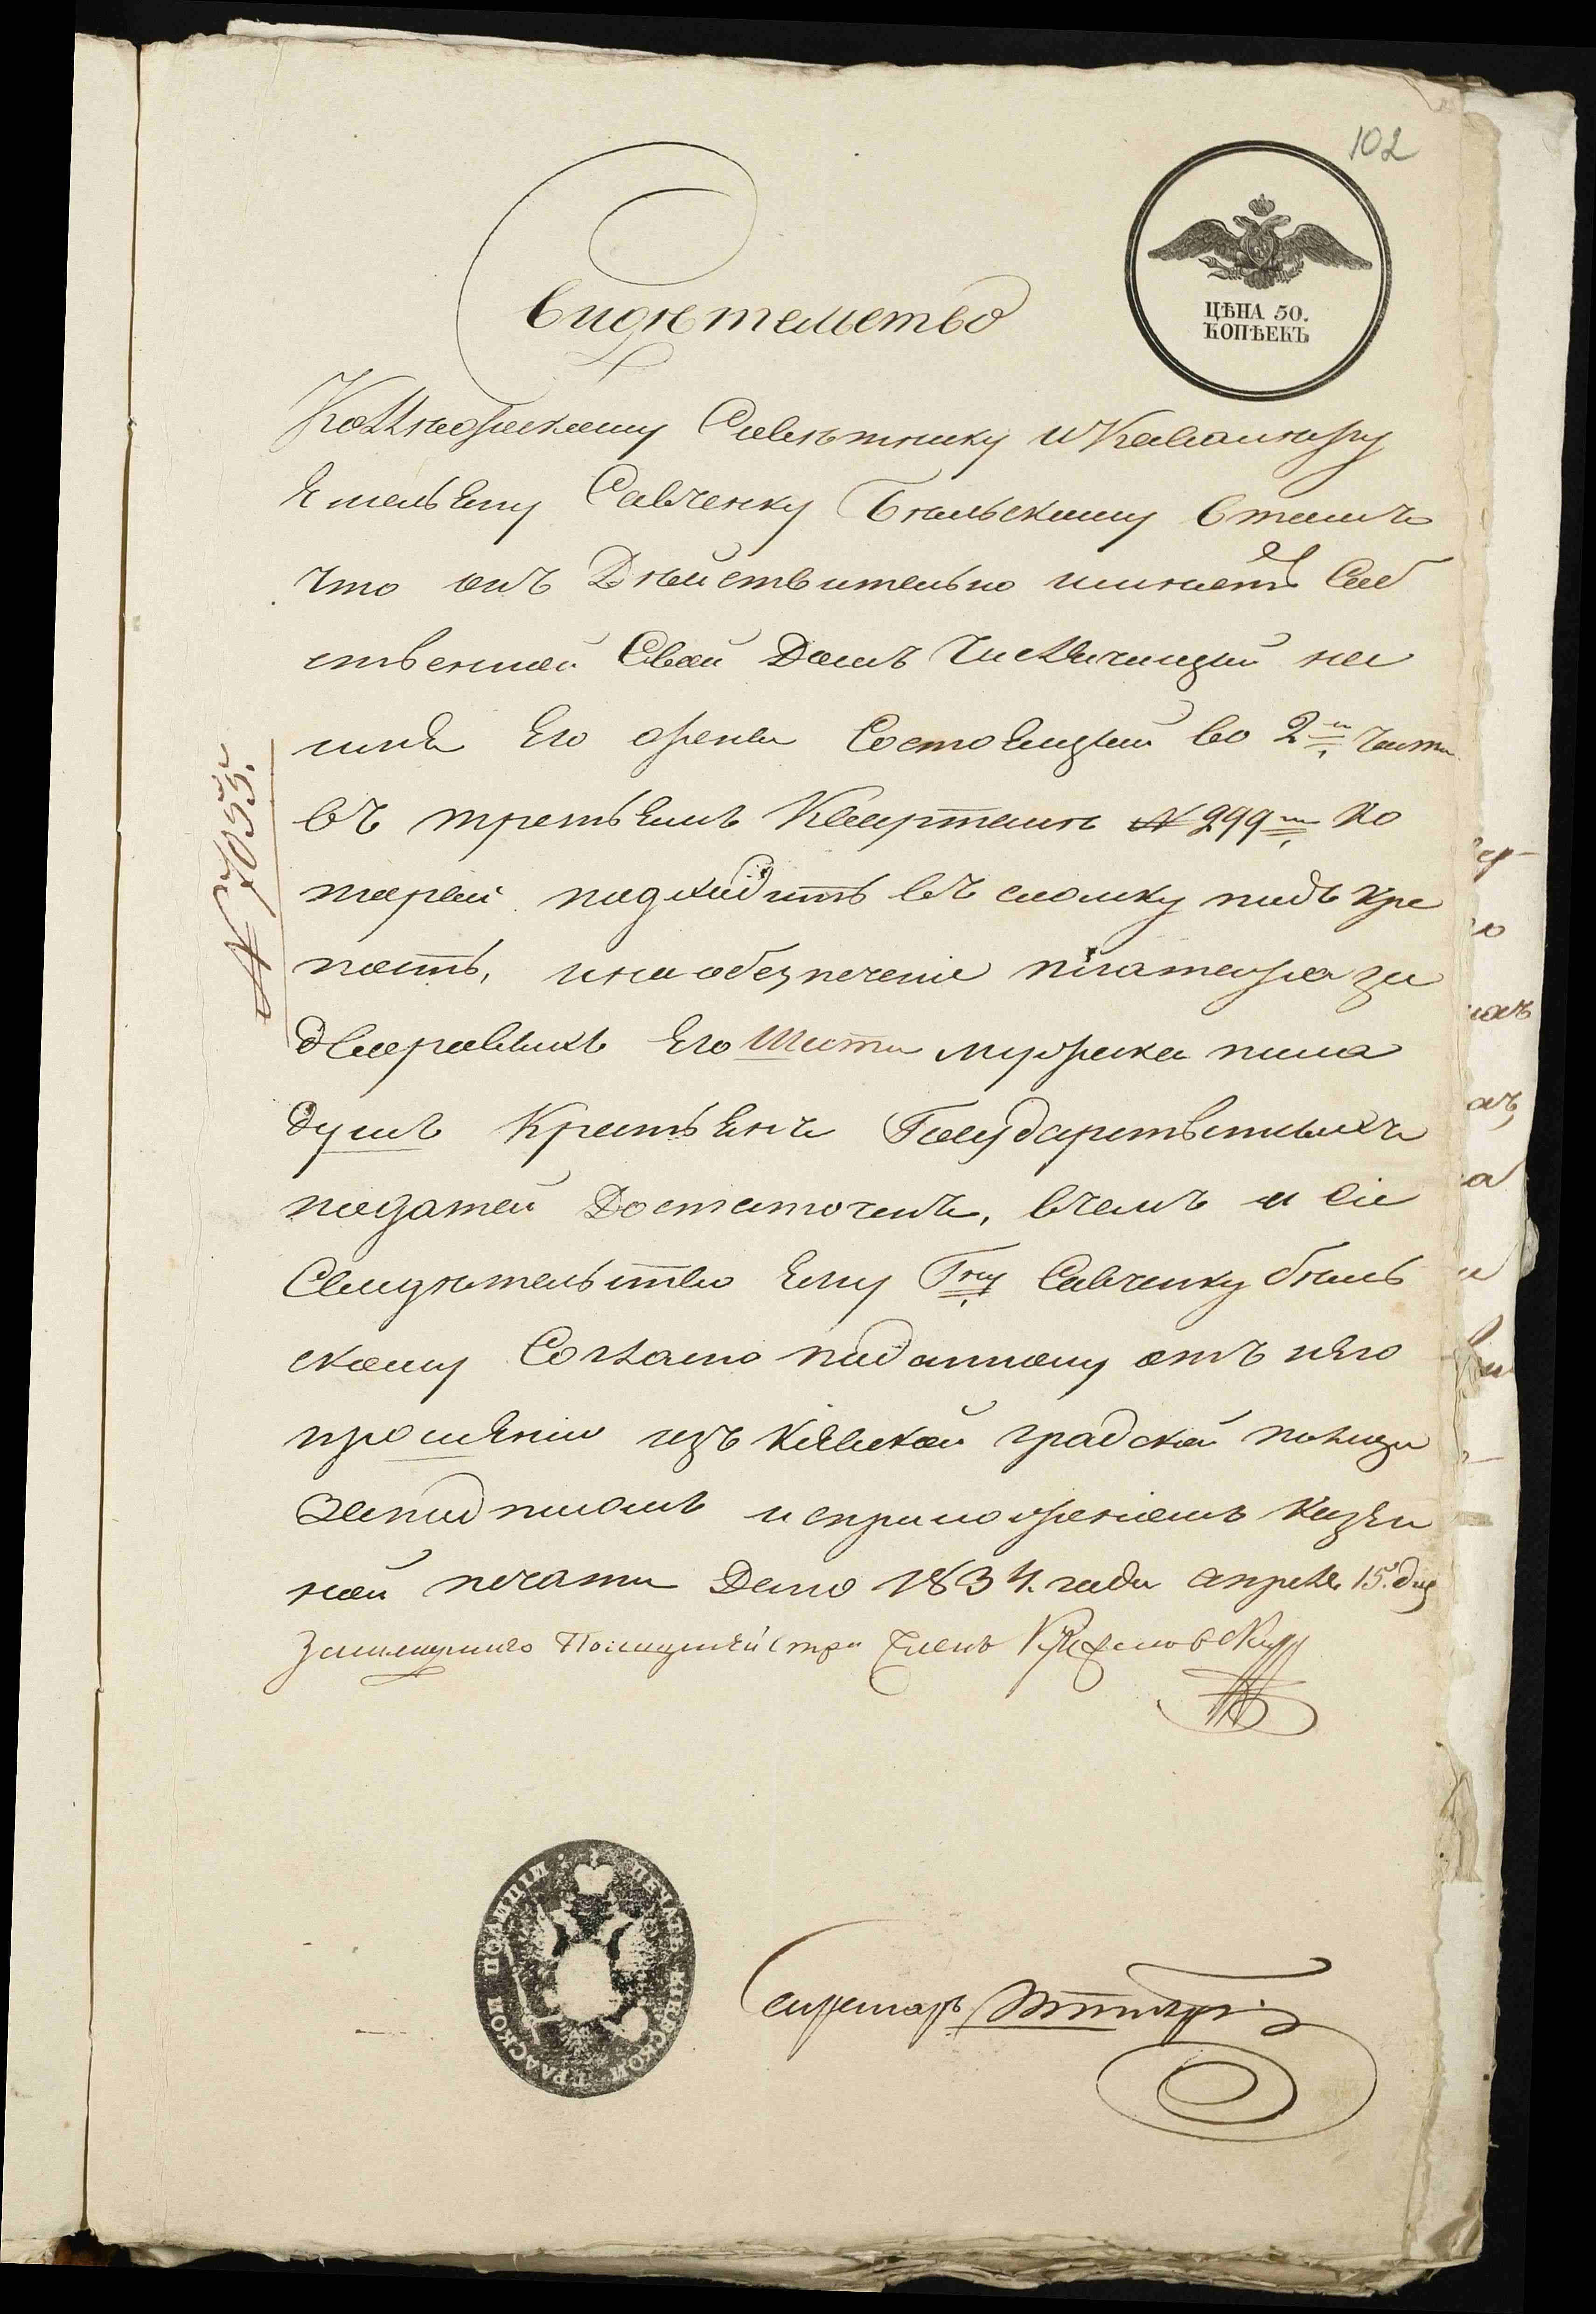 102
ЦѢНА 50.
КОПѢЕКЪ
Свидѣтельство
Коллежскому Совѣтнику и Кавалеру
Емельяну Савченку Бѣльскому в томъ
что онъ Дѣйствительно имѣетъ Соб
ственной Свой Домъ Числячицый на
имя Его жены Состоящый во 2й части
въ третьемъ Кварталѣ № 299м ко
торый подходитъ въ сломку подъ кре
пость, и на обезпеченіе платежа за
дворовыхъ Его Шести мужеска пола
душъ Крестьянъ Государственныхъ
податей Достаточенъ, в чемъ и сіе
Свидѣтельство Ему Гну Савченку Бѣль
скому Согласно поданному отъ него
прошенію изъ Кіевской градской полиціи
Заподписомъ и съприложеніемъ казен
ной печати Дано 1834. года апреля 15. дня
За полицмейстера Членъ
№ 7055.
ПЕЧАТЬ КІЕВСКОЙ ГРАДСКОЙ ПОЛИЦІИ
Секретарь